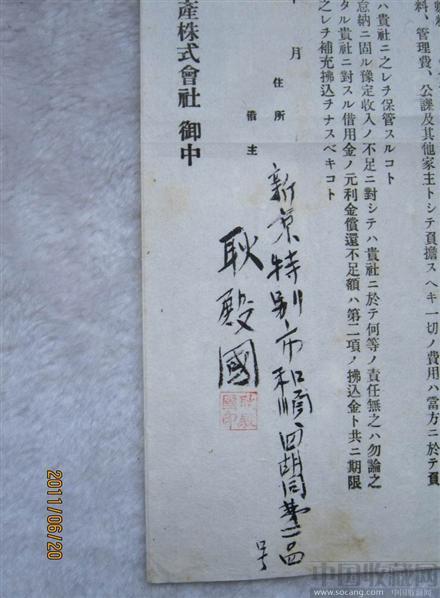 料、管理費、公課及其他家主トシテ負擔スヘキ一切ノ費用ハ當方ニ於テ負
ハ貴社ニ之レヲ保管スルコト
怠納ニ固ル豫定收入ノ不足ニ對シテハ貴社ニ於テ何等ノ責任無之ハ勿論之
タル貴社ニ對スル借用金ノ元利金償還不足額ハ第二項ノ拂込金ト共ニ期限
之レヲ補充拂込ヲナスベキコト
月
住所
新京特別市和順四胡同第
號
借主
耿殿國
產株式會社 御中
2011/06/20
中国收藏网
www.socang.com 中国收藏网